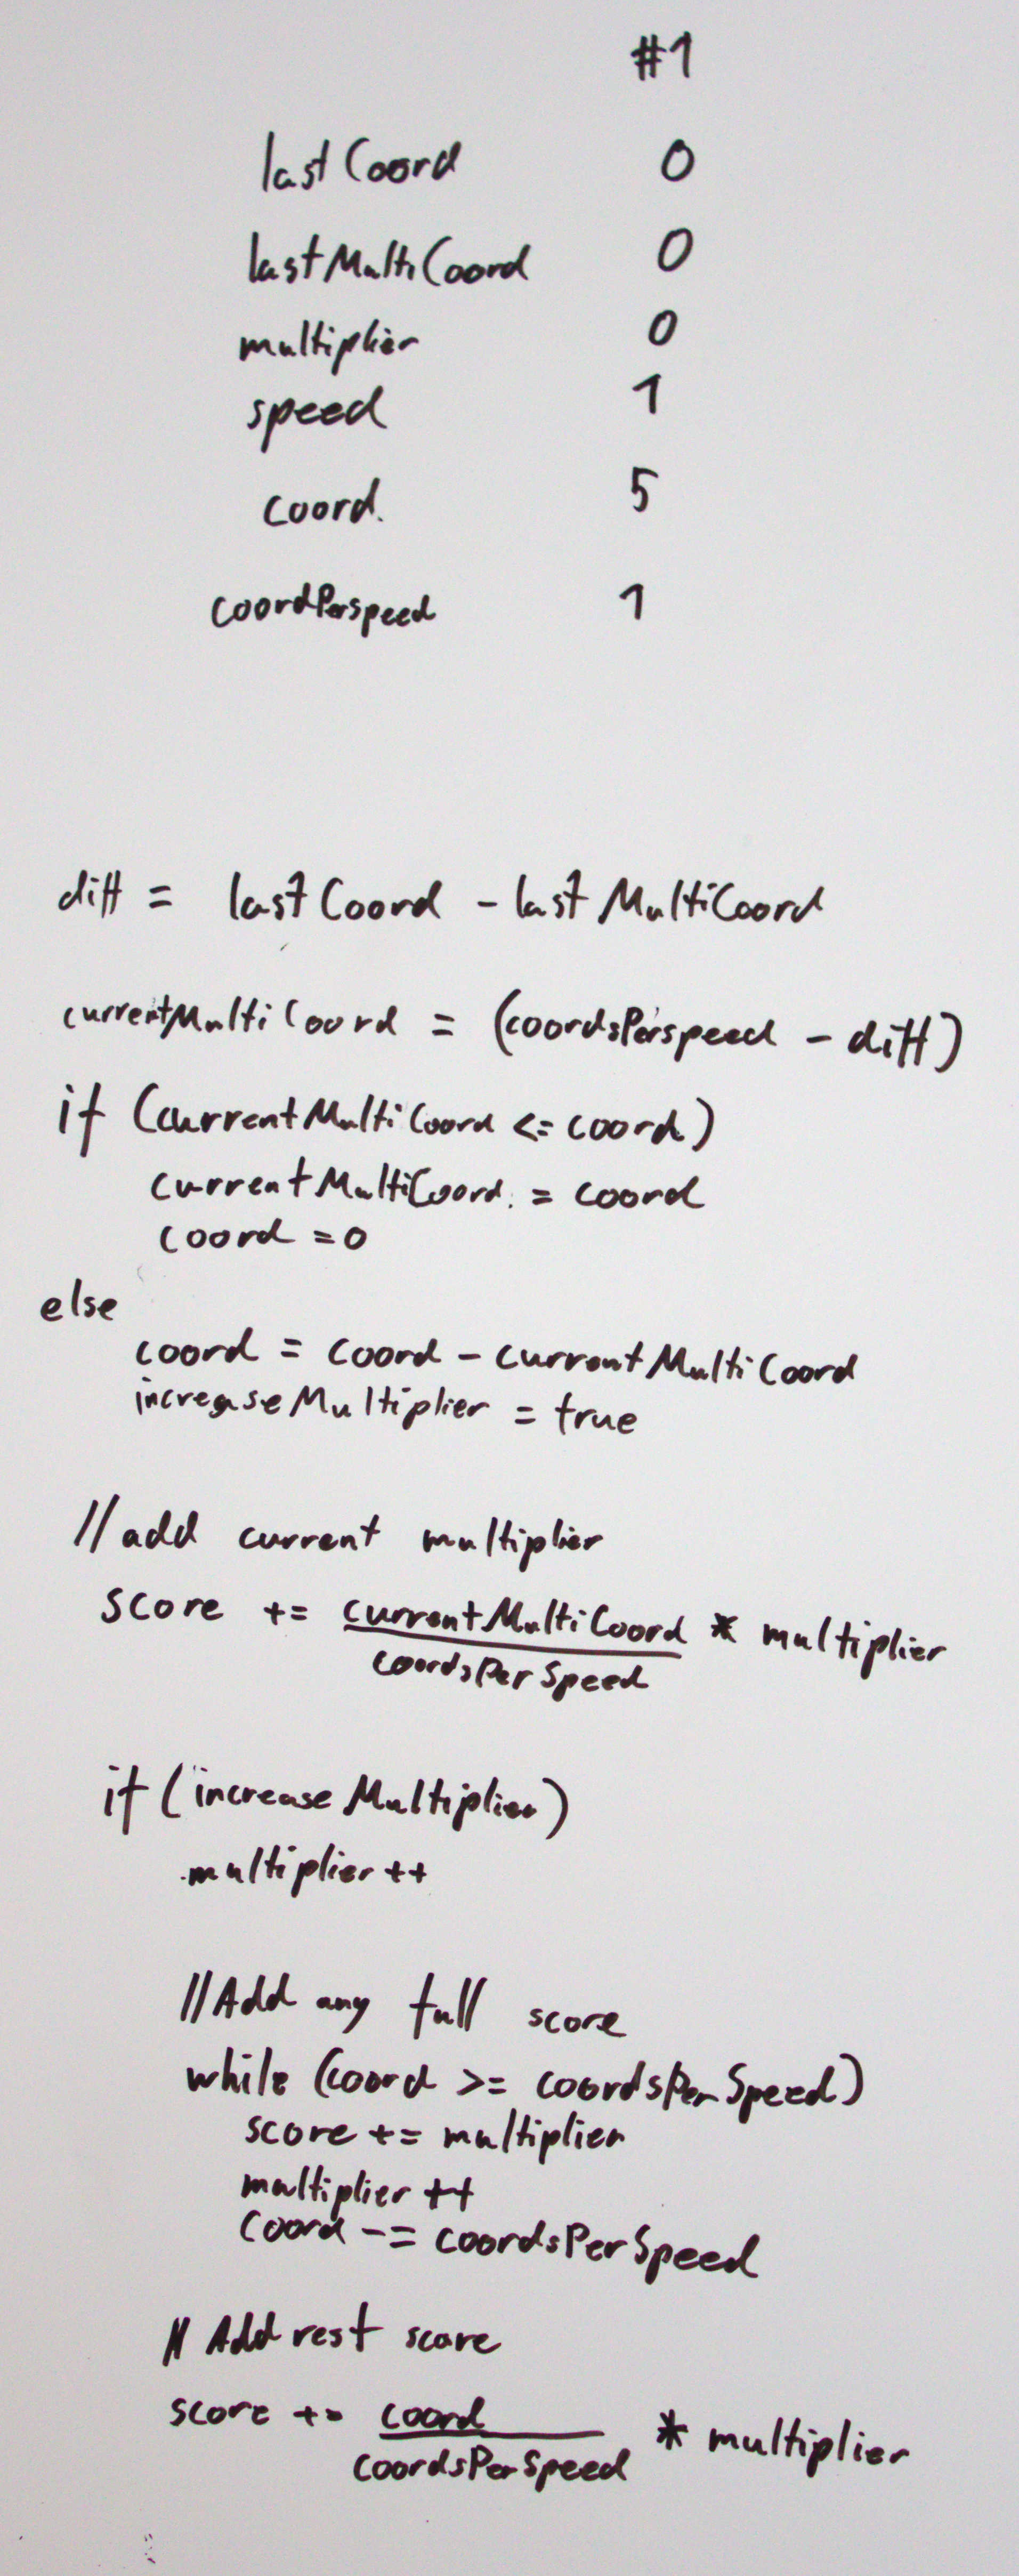 #1
lastCoord 0
lastMultiCoord 0
multiplier 0
speed 1
coord. 5
coordPerspeed 1
diff = lastCoord - lastMultiCoord
currentMultiCoord = (coordsPerspeed - diff)
if (currentMultiCoord <= coord)
currentMultiCoord = coord
coord = 0
else
coord = coord - currentMultiCoord
increaseMultiplier = true
// add current multiplier
score += currentMultiCoord * multiplier
coordsPerSpeed
if (increaseMultiplier)
multiplier ++
// Add any full score
while (coord >= coordsPerSpeed)
score += multiplier
multiplier ++
coord -= coordsPerSpeed
// Add rest score
score += coord * multiplier
coordsPerSpeed